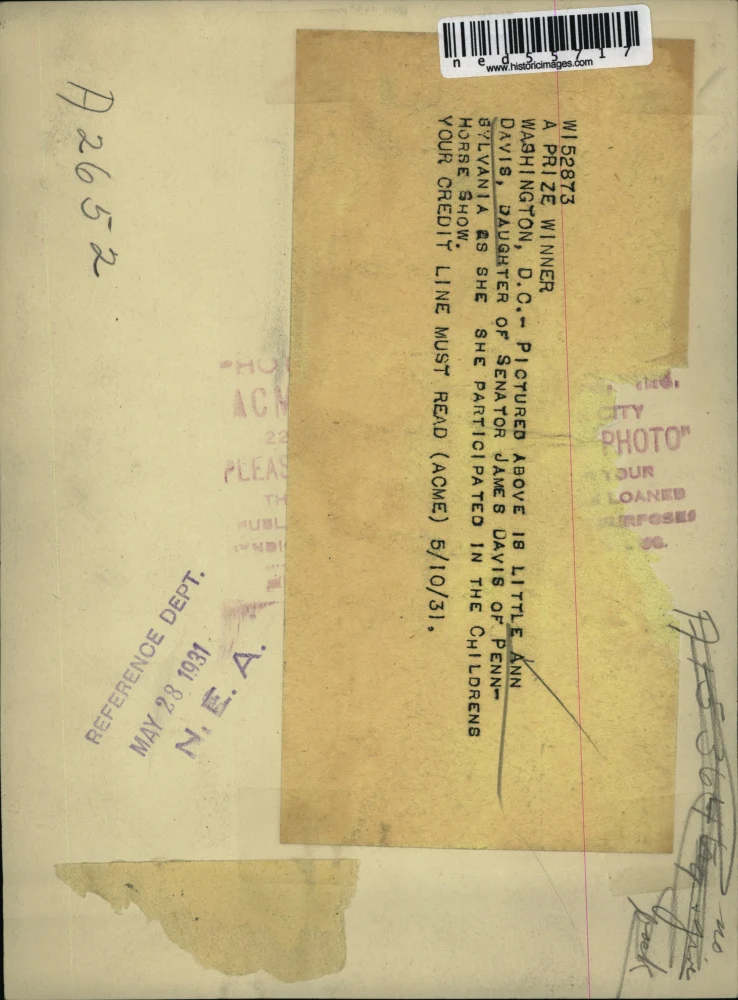 ned55717
www.historicimages.com
A2652
WI52873
A PRIZE WINNER
WASHINGTON, D.C.- PICTURED ABOVE IS LITTLE ANN
DAVIS, DAUGHTER OF SENATOR JAMES DAVIS OF PENN-
SYLVANIA AS SHE SHE PARTICIPATED IN THE CHILDRENS
HORSE SHOW.
YOUR CREDIT LINE MUST READ (ACME) 5/10/31.
ACM
22
PLEAS
TH
PUBL
CITY
PHOTO"
YOUR
LOANED
REFERENCE DEPT.
MAY 28 1931
N. E. A.
no
back